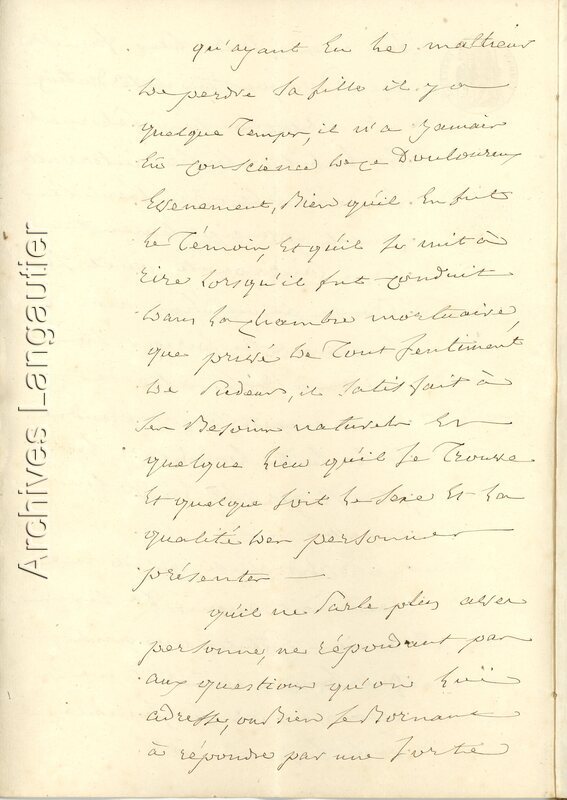 qu'ayant Eu le malheur
de perdre sa fille il y a
quelque Temps, il n'a Jamais
Eu conscience de ce Douloureux
Evenement, Bien qu'il En fut
le Témoin, Et qu'il se mit à
rire lorsqu'il fut conduit
dans la chambre mortuaire,
que privé de Tout sentiment
de Pudeur, il satisfait à
ses Besoins naturels En
quelque lieu qu'il se Trouve
Et quelque soit le sexe Et la
qualité des personnes
présentes —
qu'il ne Parle plus avec
personne, ne répondant pas
aux questions qu'on lui
adresse, ou Bien se Bornant
à répondre par une sorte
Archives Langautier